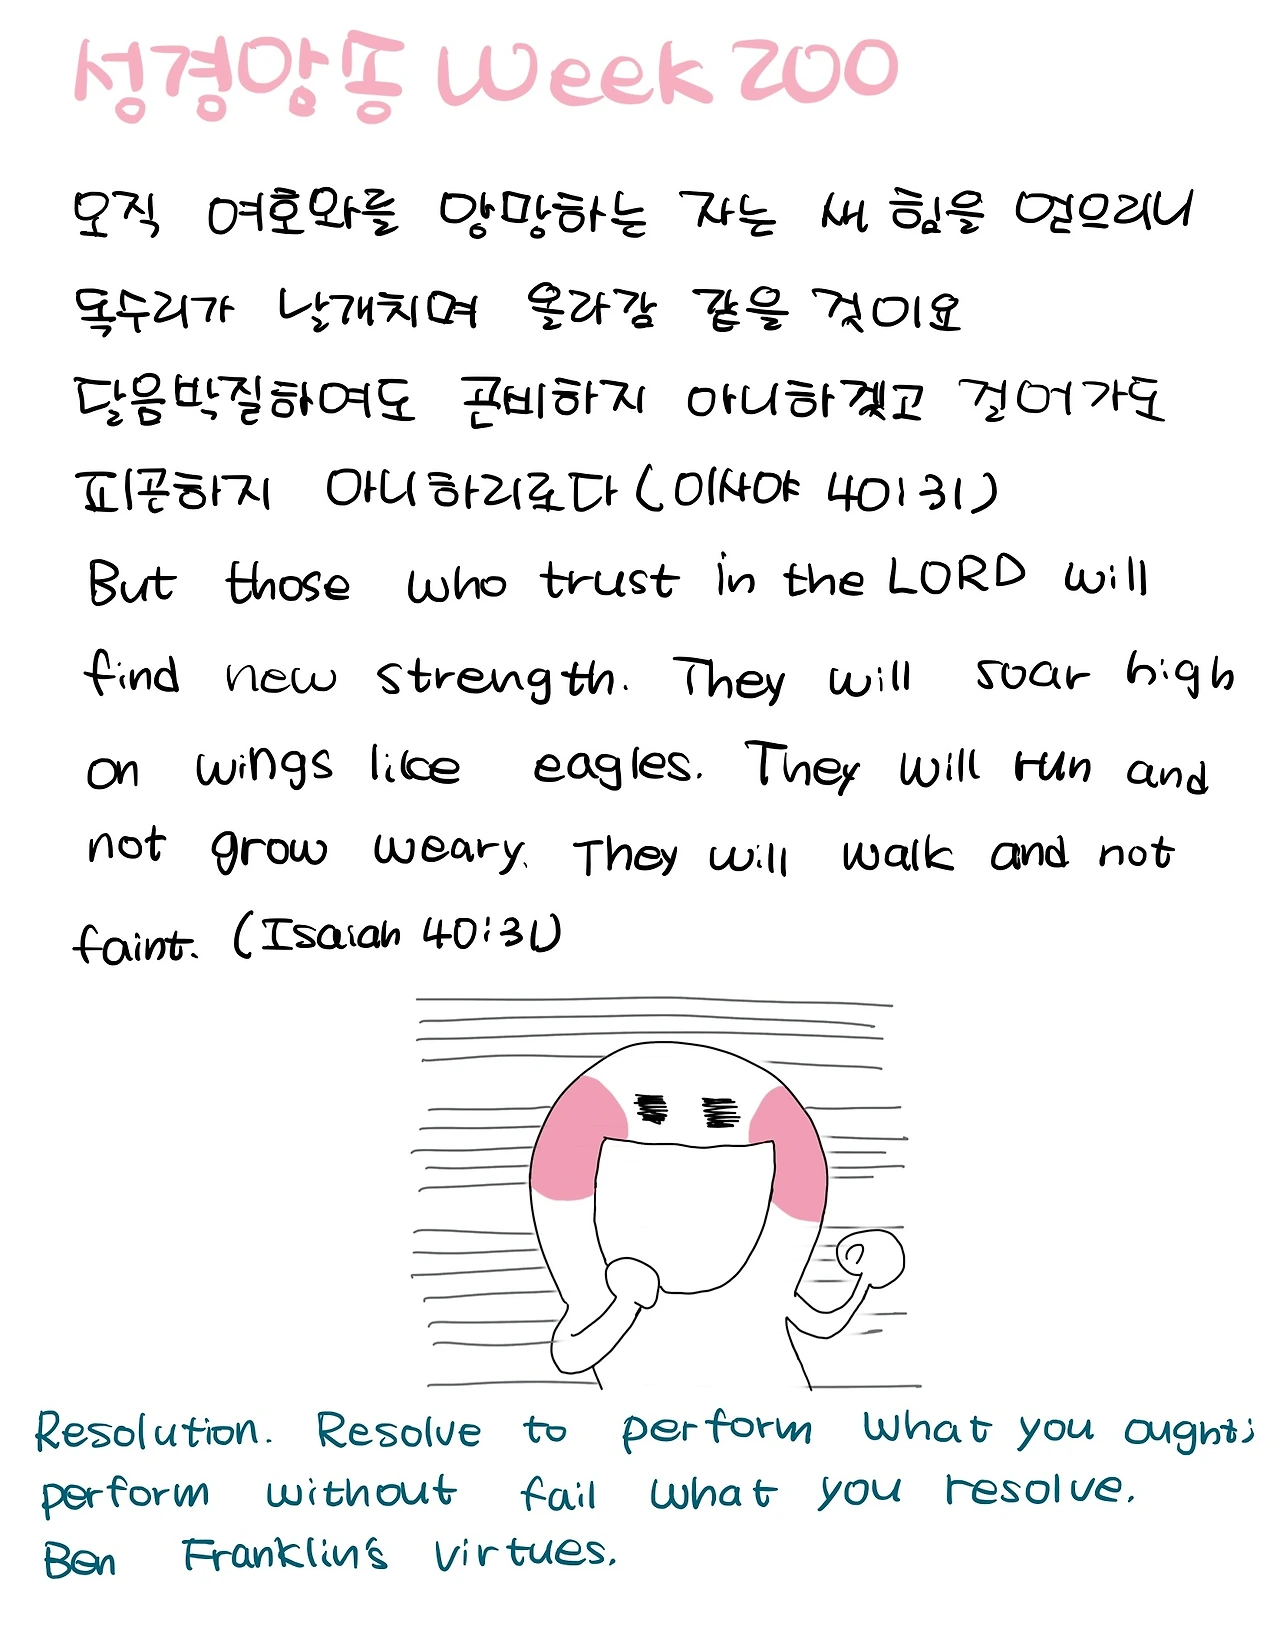 성경암송 Week 200
오직 여호와를 앙망하는 자는 새 힘을 얻으리니
독수리가 날개치며 올라감 같을 것이요
달음박질하여도 곤비하지 아니하겠고 걸어가도
피곤하지 아니하리로다 (이사야 40:31)
But those who trust in the LORD will
find new strength. They will soar high
on wings like eagles. They will run and
not grow weary. They will walk and not
faint. (Isaiah 40:31)
Resolution. Resolve to perform what you ought;
perform without fail what you resolve.
Ben Franklin's virtues.